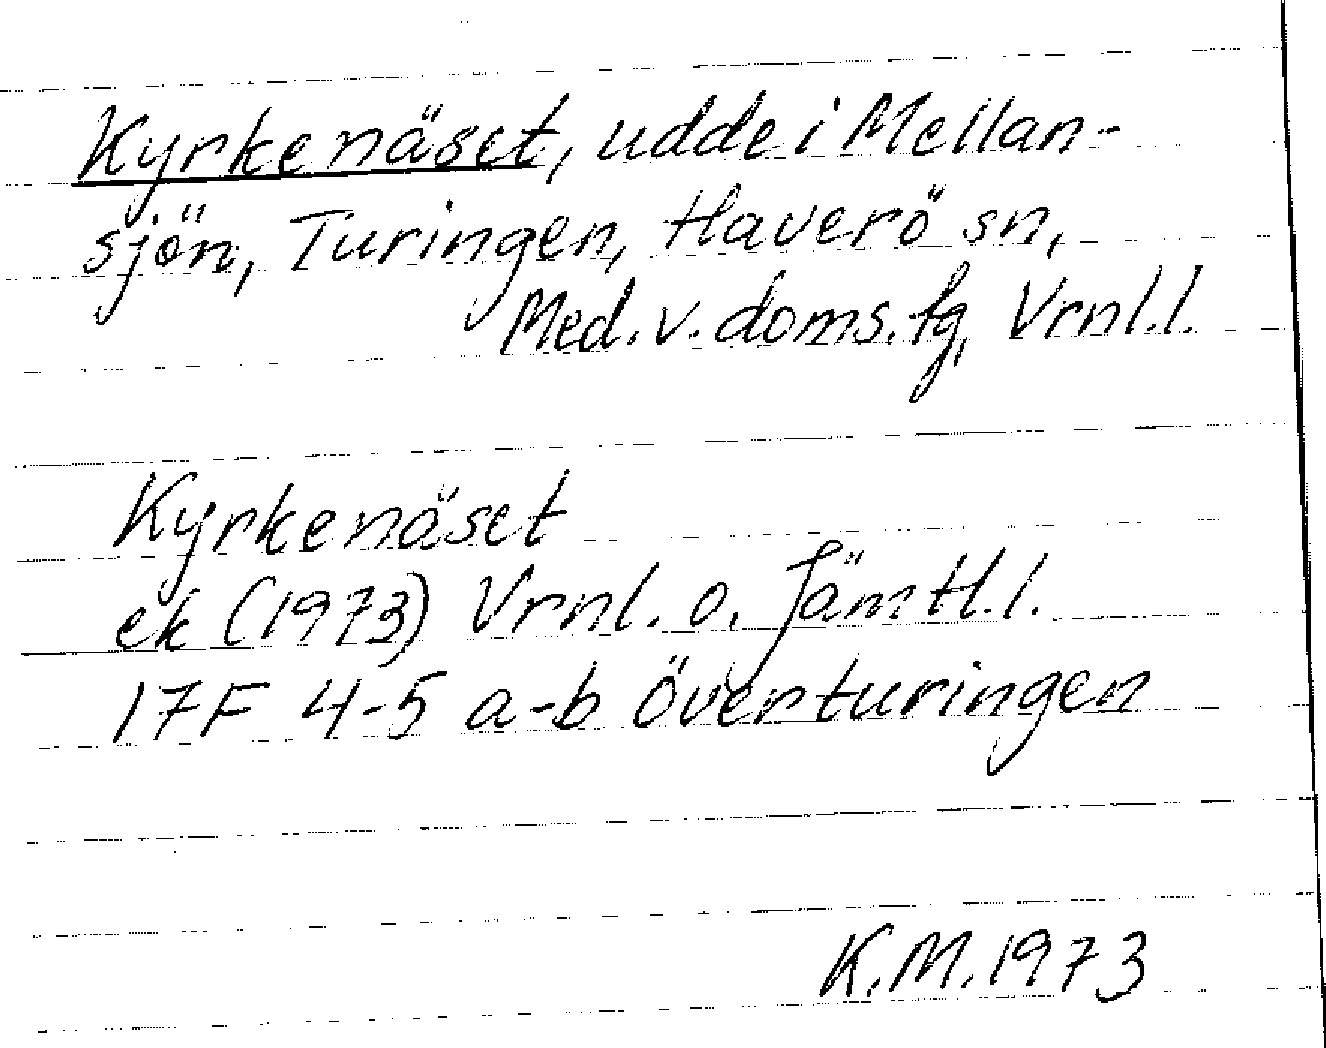 Kyrkenäset, udde i Mellan-
sjön, Turingen, Haverö sn,
Med. v. doms. fg, Vrnl. l.
Kyrkenäset
ek (1973) Vrnl. o. Jämtl. l.
17F 4-5 a-b Överturingen
K.M. 1973